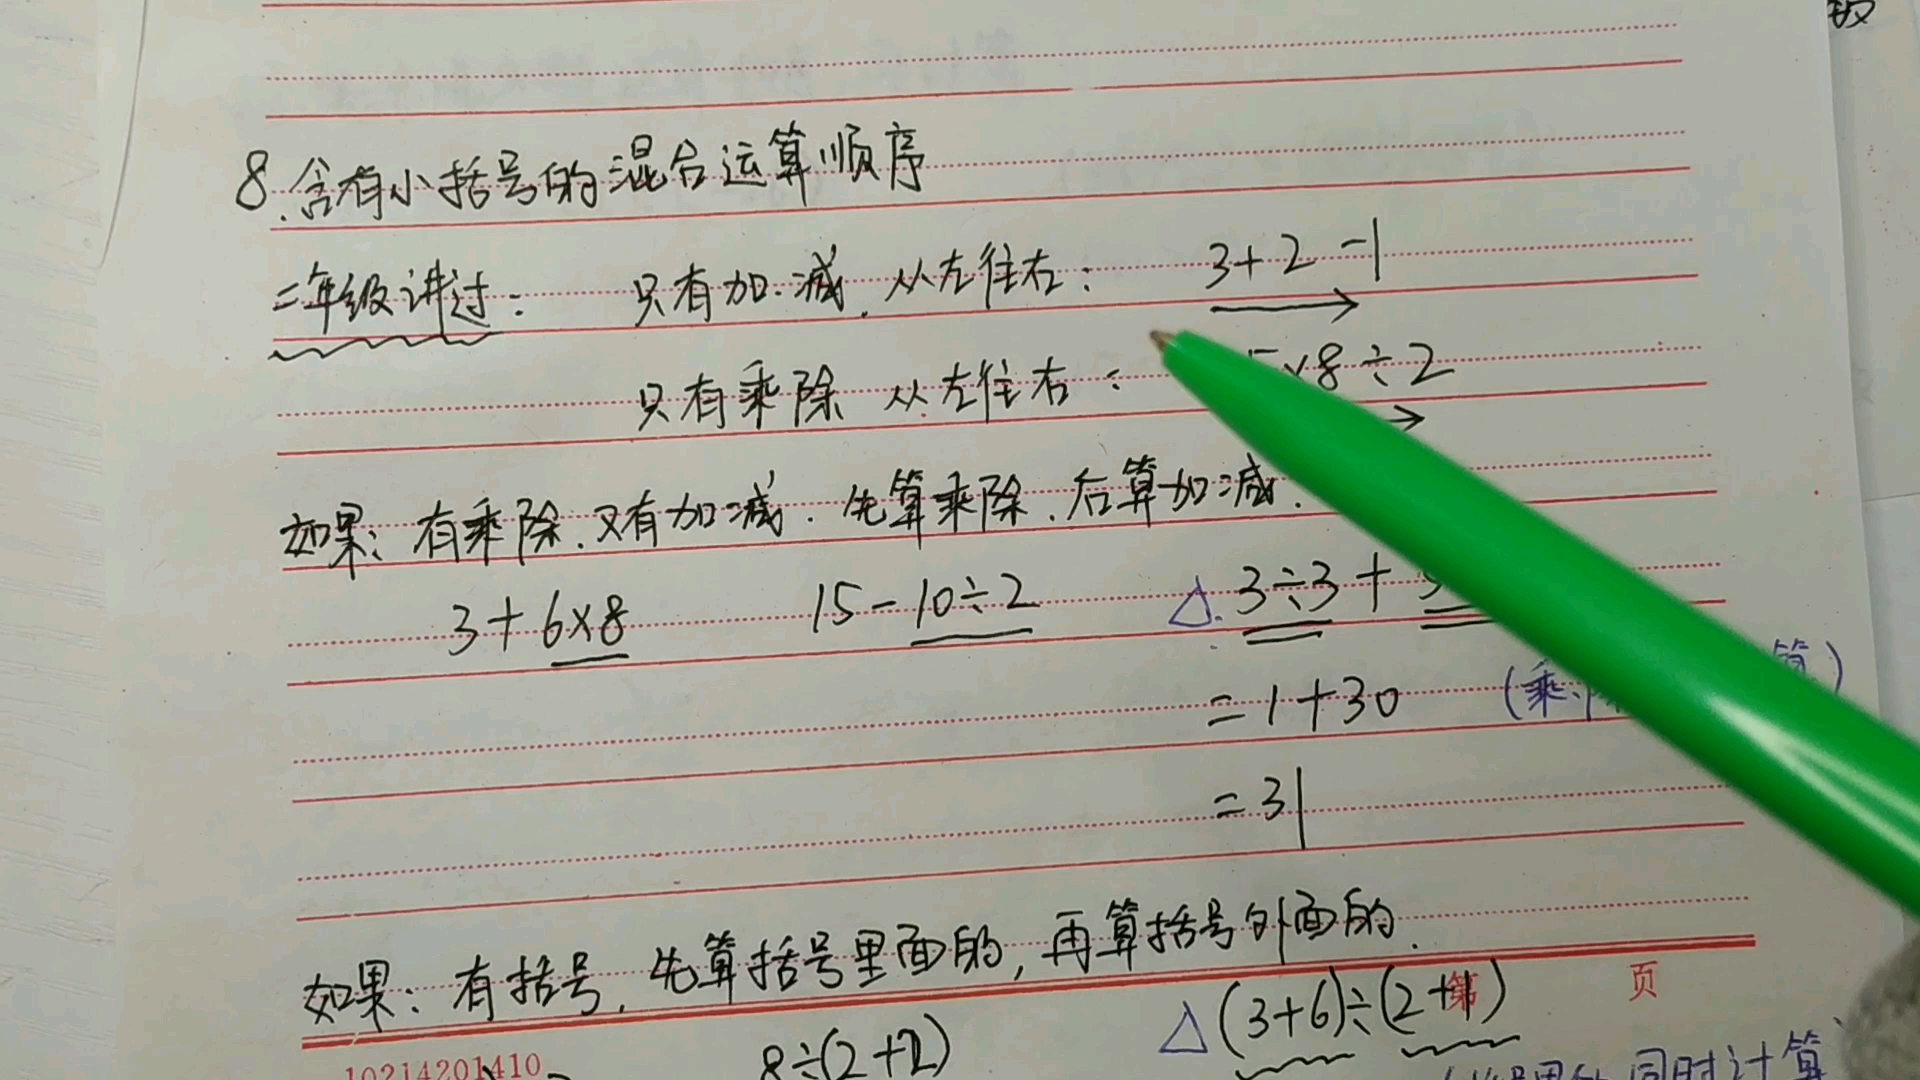 8.含有小括号的混合运算顺序
二年级讲过: 只有加.减.从左往右: 3+2-1
只有乘除 从左往右: ×8÷2
如果:有乘除.又有加减.先算乘除.后算加减.
3+6×8 15-10÷2 △.3÷3+
=1+30 (乘、 算)
=31
如果:有括号,先算括号里面的,再算括号外面的.
第 页
△(3+6)÷(2+1)
10214201410
8÷(2+2)
同时计算